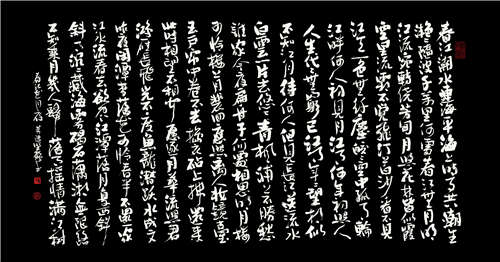 春江潮水連海平海上明月共潮生
灩灩隨波千萬里何處春江無月明
江流宛轉繞芳甸月照花林皆似霰
空里流霜不覺飛汀上白沙看不見
江天一色無纖塵皎皎空中孤月輪
江畔何人初見月江月何年初照人
人生代代無窮已江月年年望相似
不知江月待何人但見長江送流水
白雲一片去悠悠青楓浦上不勝愁
誰家今夜扁舟子何處相思明月樓
可憐樓上月裴回應照離人妝鏡臺
玉戶簾中卷不去搗衣砧上拂還來
此時相望不相聞願逐月華流照君
鴻雁長飛光不度魚龍潛躍水成文
昨夜閑潭夢落花可憐春半不還家
江水流春去欲盡江潭落月復西斜
斜月沉沉藏海霧碣石瀟湘無限路
不知乘月幾人歸落月搖情滿江樹